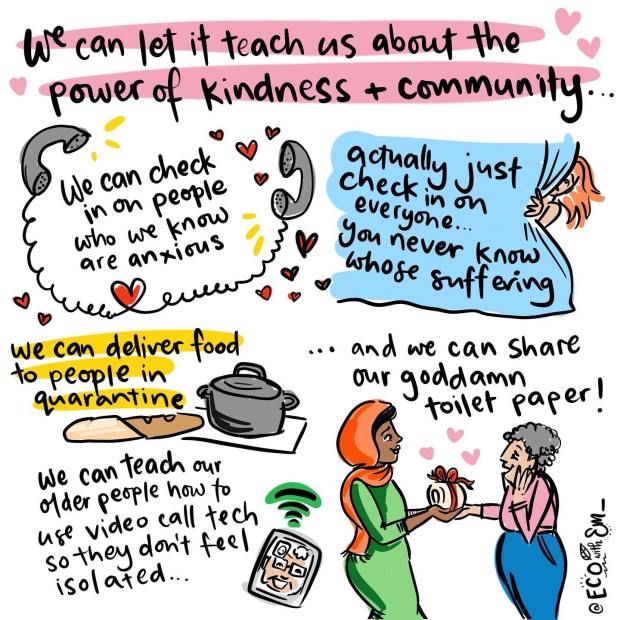 We can let it teach us about the
power of kindness + community...
We can check
in on people
who we know
are anxious
actually just
check in on
everyone...
you never know
whose suffering
we can deliver food
to people in
quarantine
... and we can share
our goddamn
toilet paper!
we can teach our
older people how to
use video call tech
so they don't feel
isolated...
@ECO with Em_